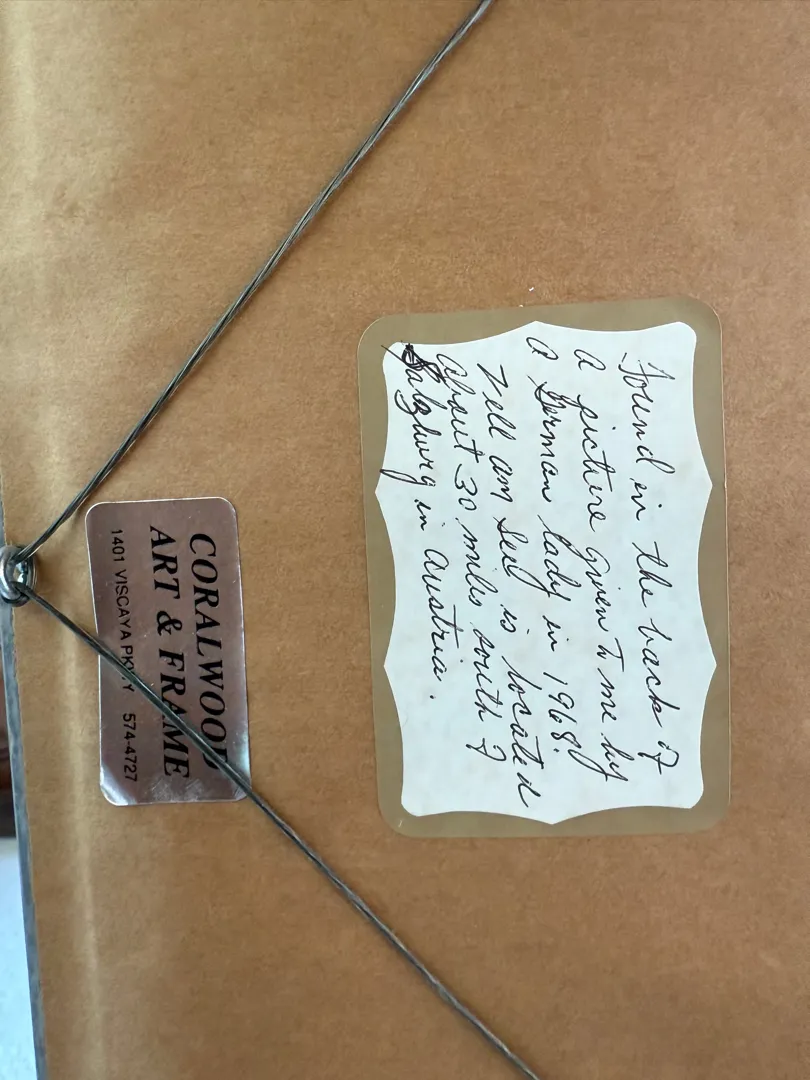 Found in the back of
a picture given to me by
a German lady in 1968.
Zell am See is located
about 30 miles south of
Salzburg in Austria.
CORALWOOD
ART & FRAME
1401 VISCAYA PKWY 574-4727